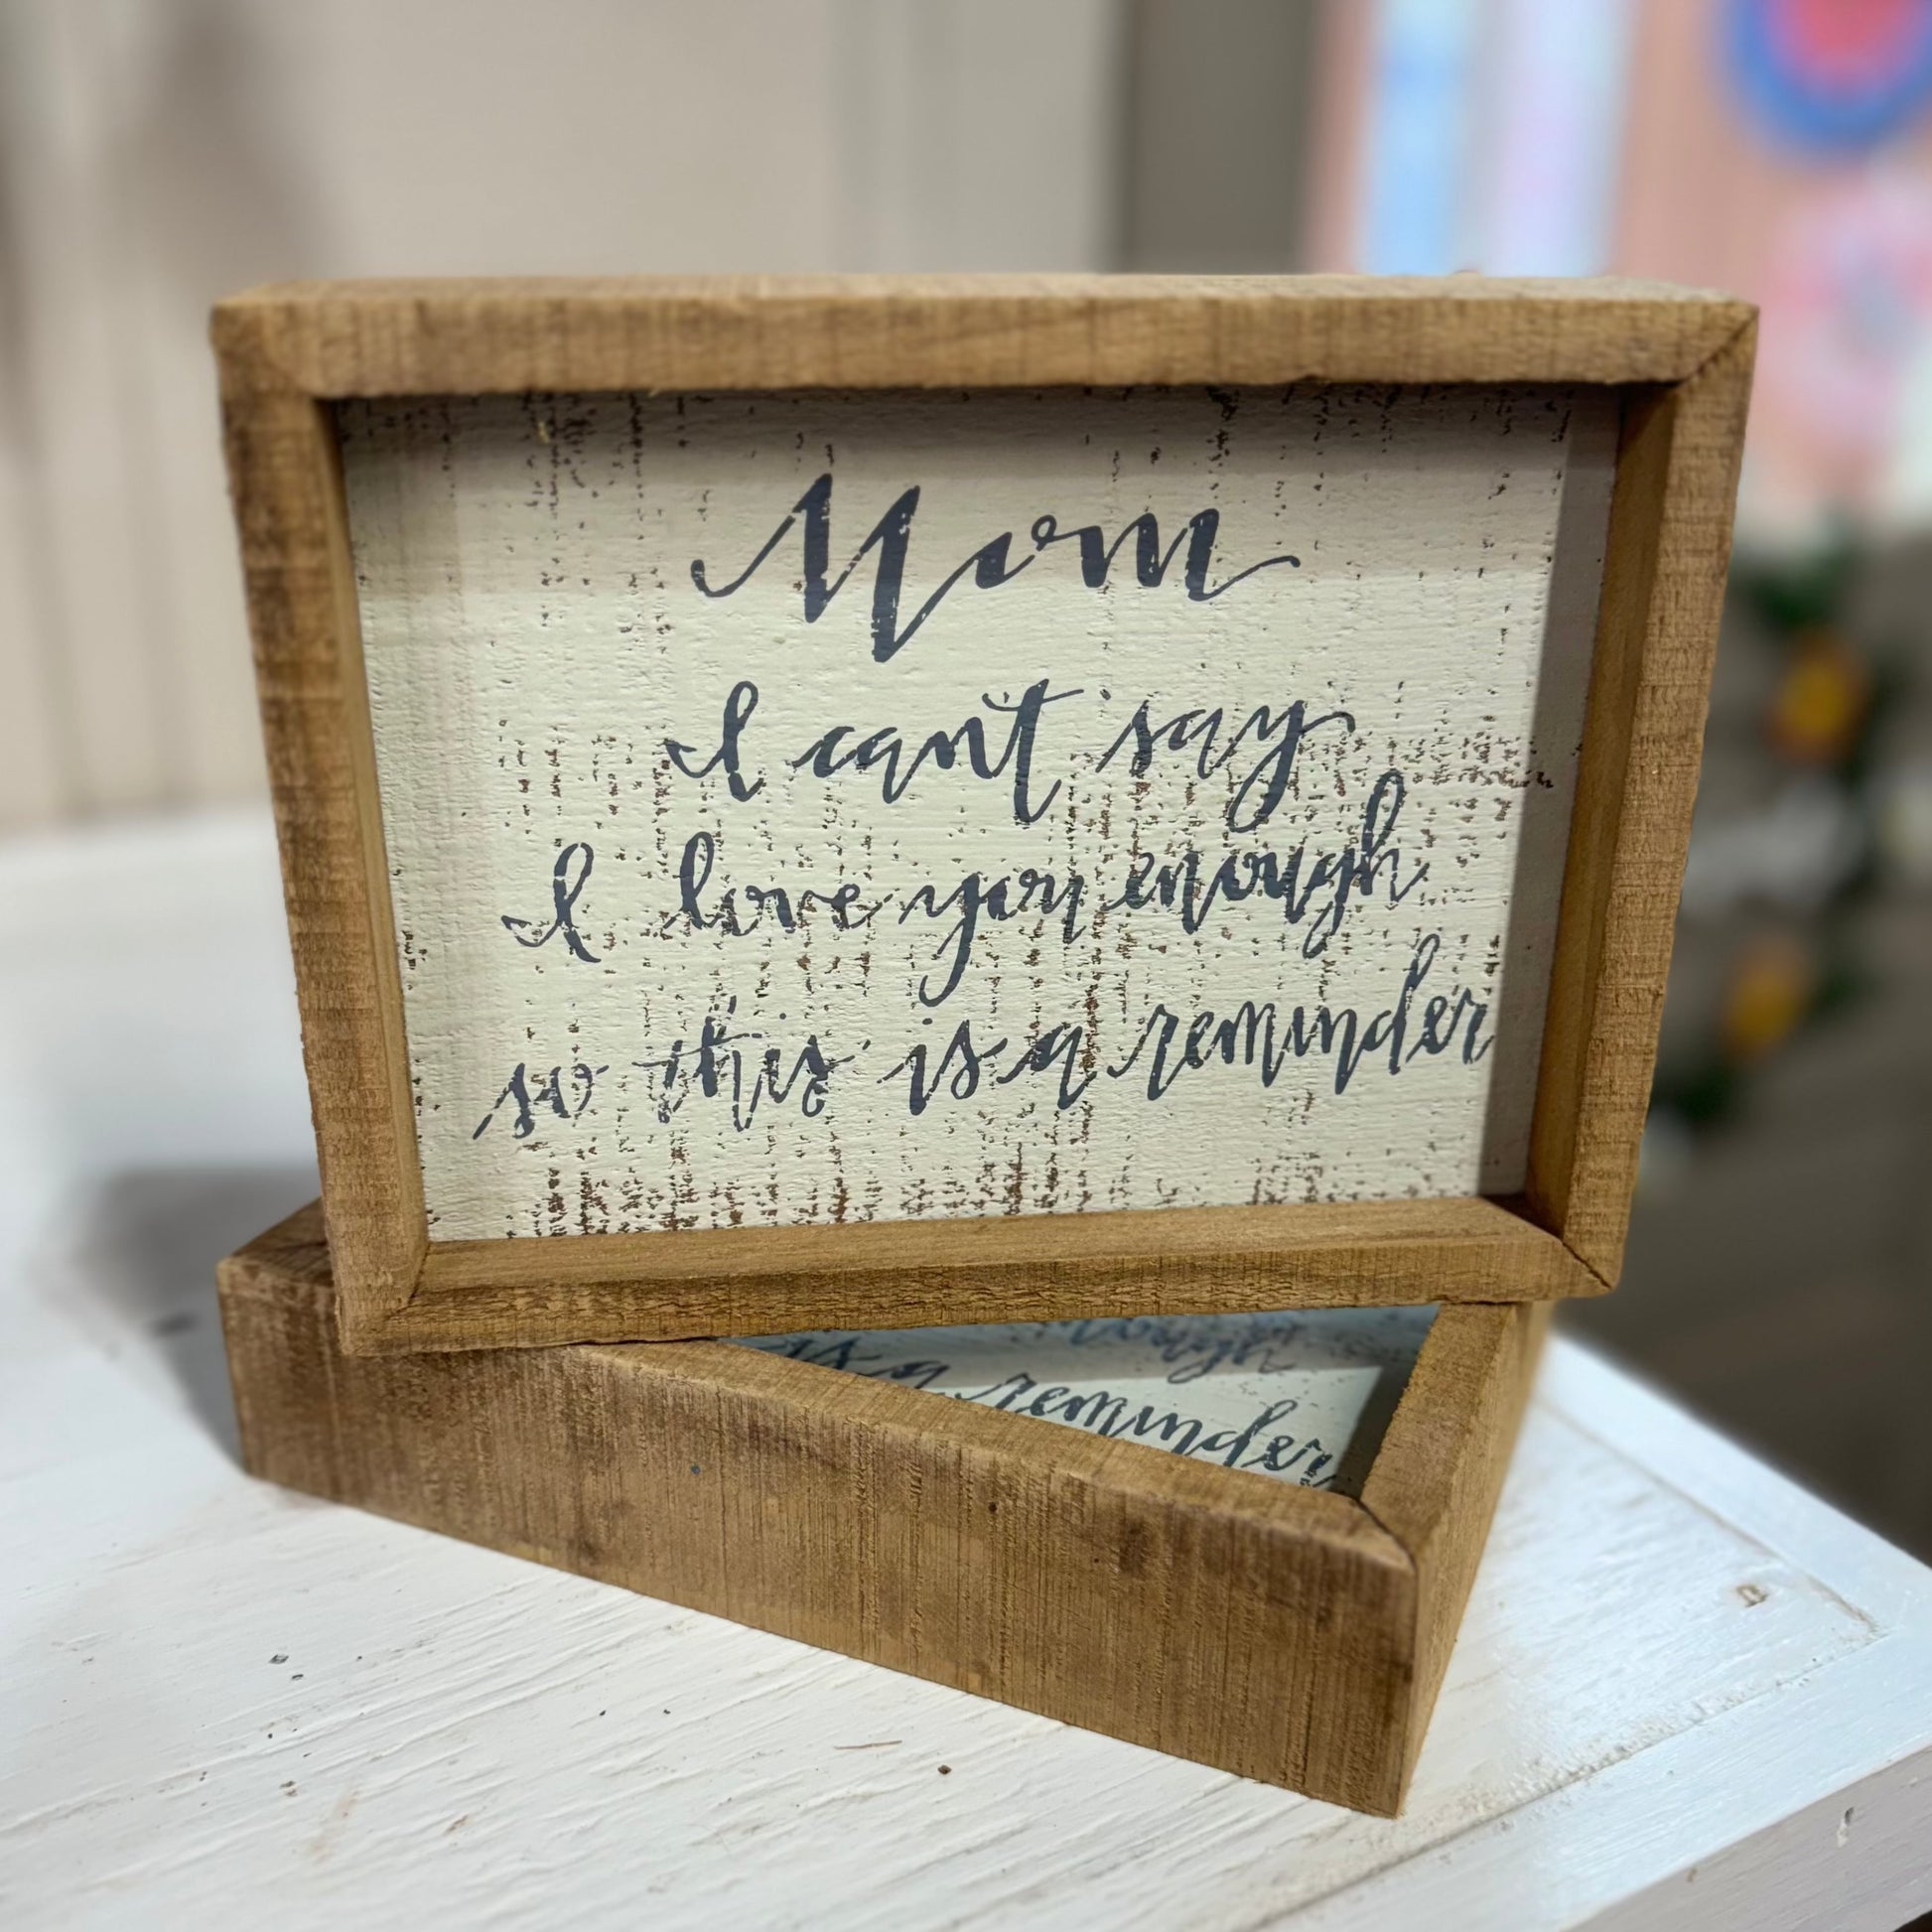 Mom
I can't say
I love you enough
so this is a reminder
nough
is a reminder